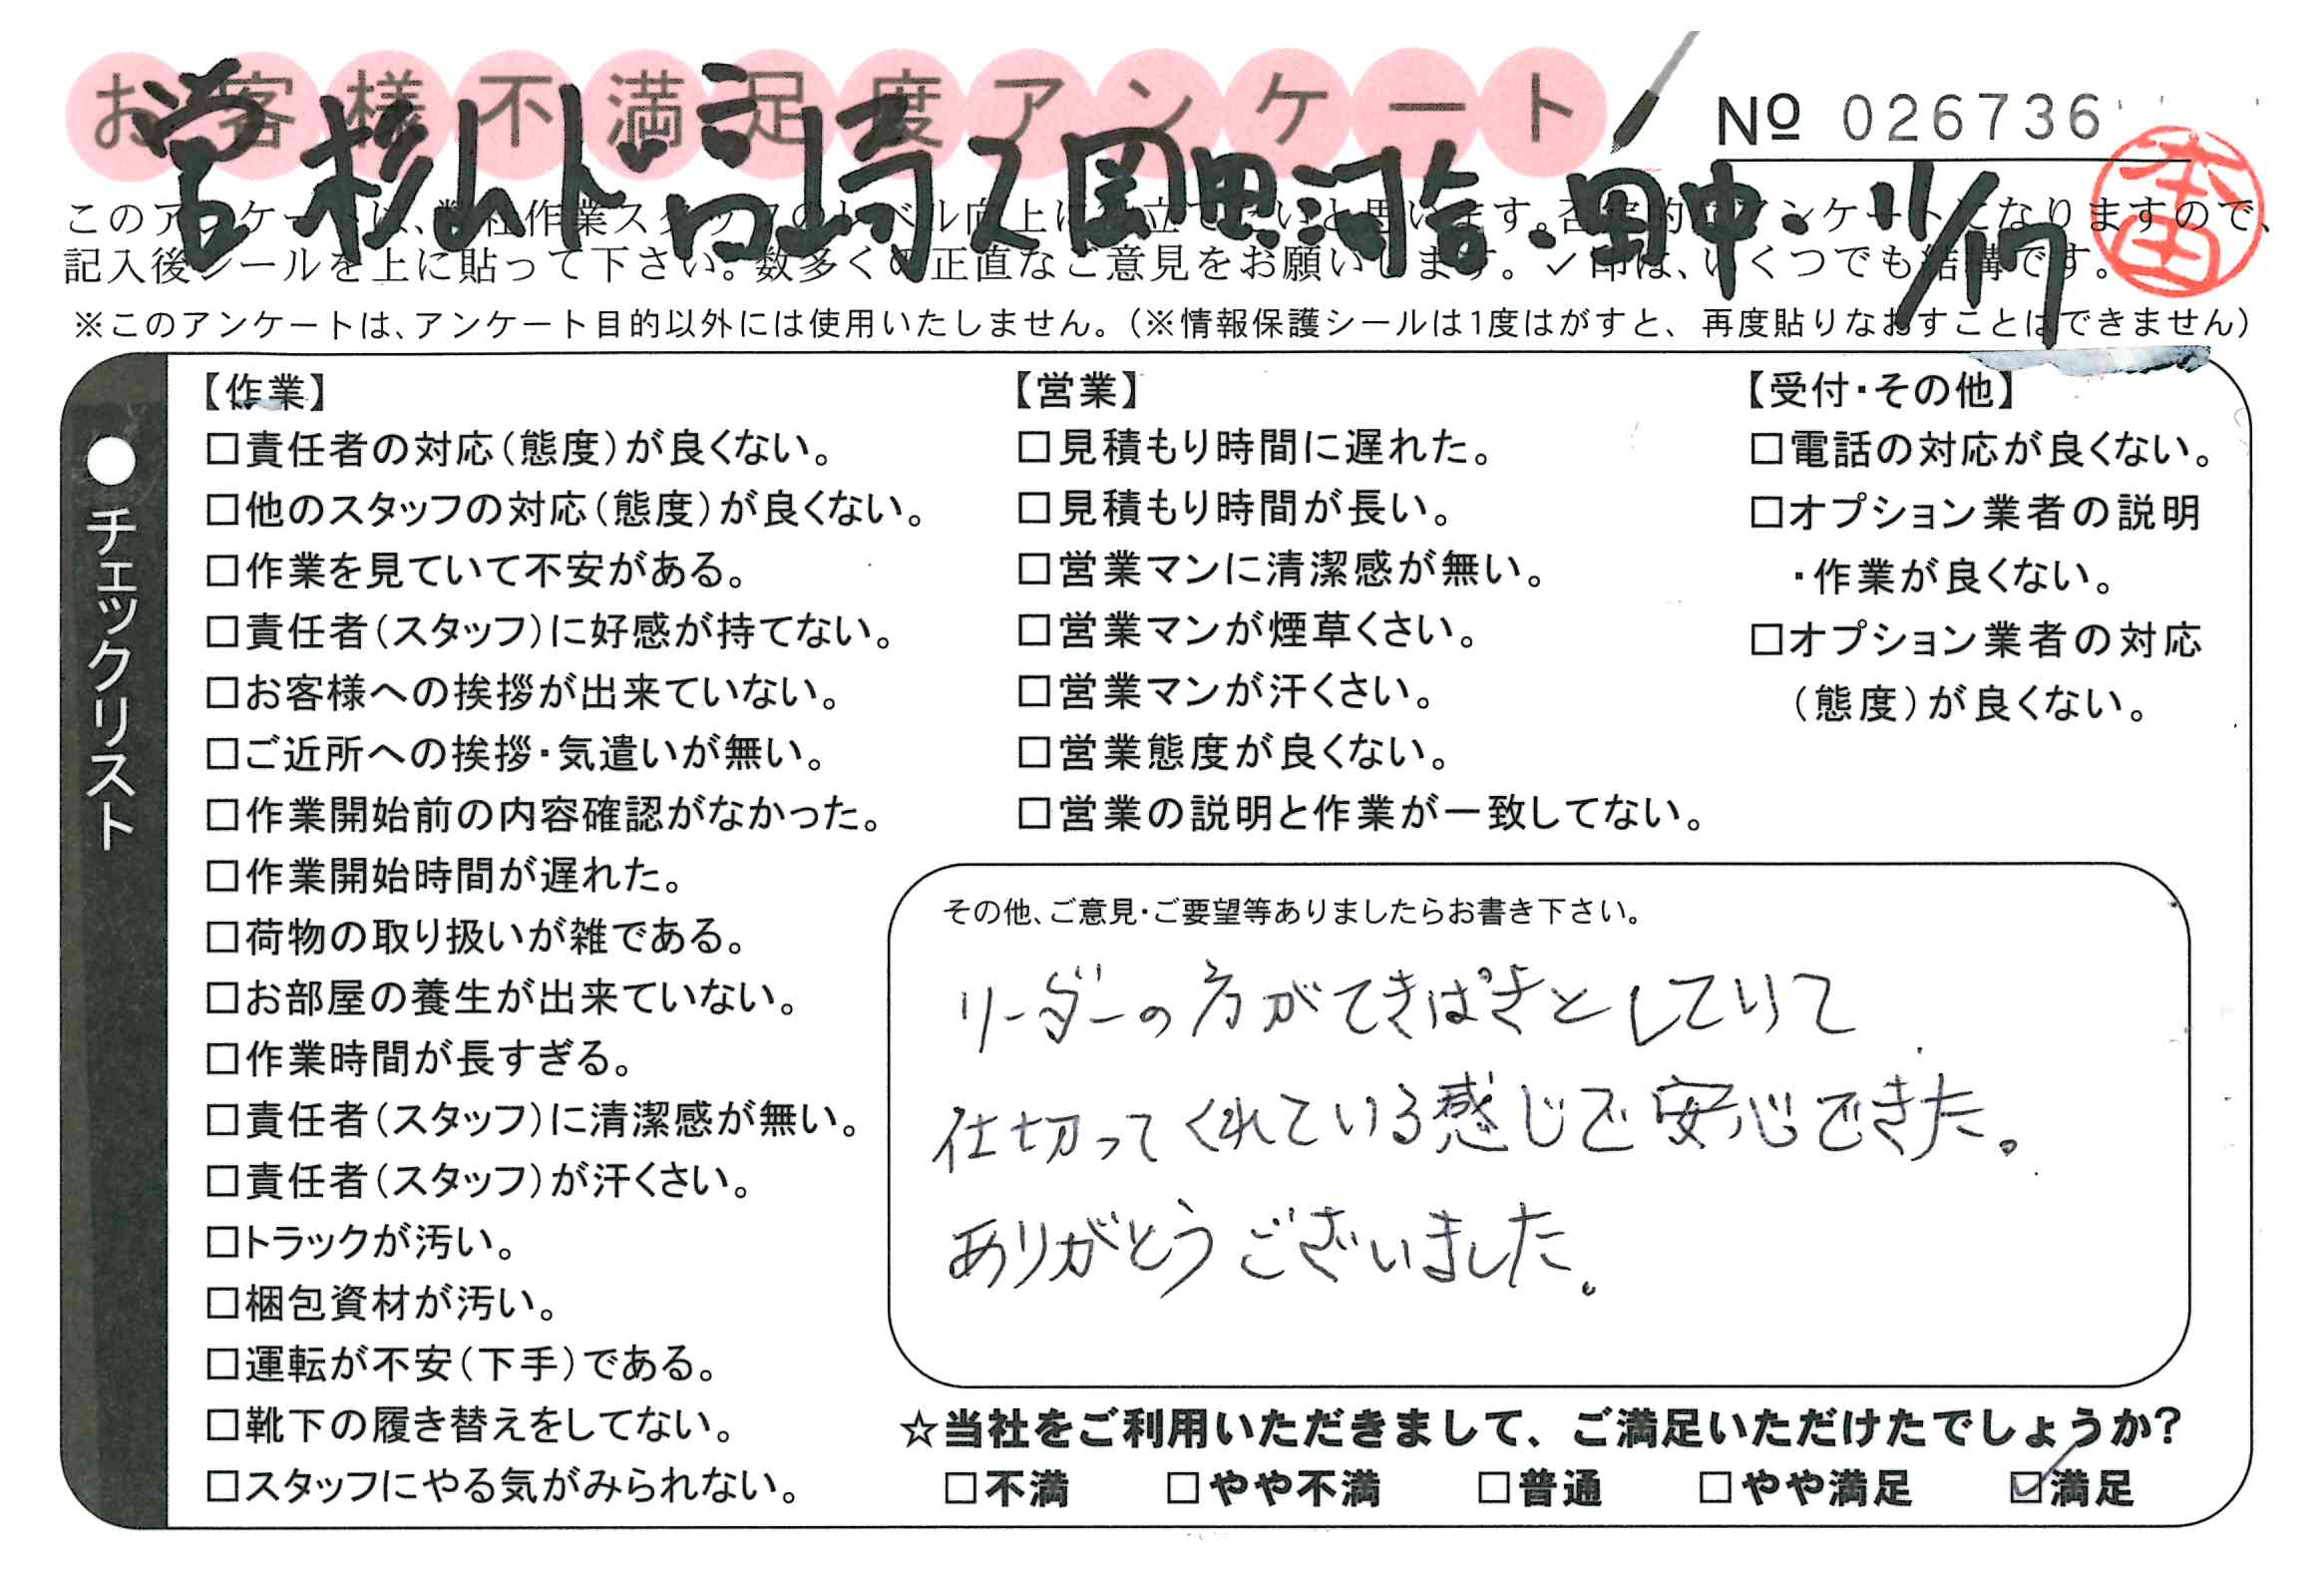 お客様不満足度アンケート
No 026736
営 杉山 ド 宮崎 又 岡田 河合・田中・11/17
本田
このアンケートは、弊社作業スタッフのレベル向上に役立てたいと思います。否定的なアンケートになりますので、
記入後シールを上に貼って下さい。数多くの正直なご意見をお願いします。✓印は、いくつでも結構です。
※このアンケートは、アンケート目的以外には使用いたしません。(※情報保護シールは1度はがすと、再度貼りなおすことはできません)
●チェックリスト
【作業】
□責任者の対応(態度)が良くない。
□他のスタッフの対応(態度)が良くない。
□作業を見ていて不安がある。
□責任者(スタッフ)に好感が持てない。
□お客様への挨拶が出来ていない。
□ご近所への挨拶・気遣いが無い。
□作業開始前の内容確認がなかった。
□作業開始時間が遅れた。
□荷物の取り扱いが雑である。
□お部屋の養生が出来ていない。
□作業時間が長すぎる。
□責任者(スタッフ)に清潔感が無い。
□責任者(スタッフ)が汗くさい。
□トラックが汚い。
□梱包資材が汚い。
□運転が不安(下手)である。
□靴下の履き替えをしてない。
□スタッフにやる気がみられない。
【営業】
□見積もり時間に遅れた。
□見積もり時間が長い。
□営業マンに清潔感が無い。
□営業マンが煙草くさい。
□営業マンが汗くさい。
□営業態度が良くない。
□営業の説明と作業が一致してない。
【受付・その他】
□電話の対応が良くない。
□オプション業者の説明
・作業が良くない。
□オプション業者の対応
(態度)が良くない。
その他、ご意見・ご要望等ありましたらお書き下さい。
リーダーの方がてきぱきとしていて
仕切ってくれている感じで安心できた。
ありがとうございました。
☆当社をご利用いただきまして、ご満足いただけたでしょうか?
□不満 □やや不満 □普通 □やや満足 ☑満足